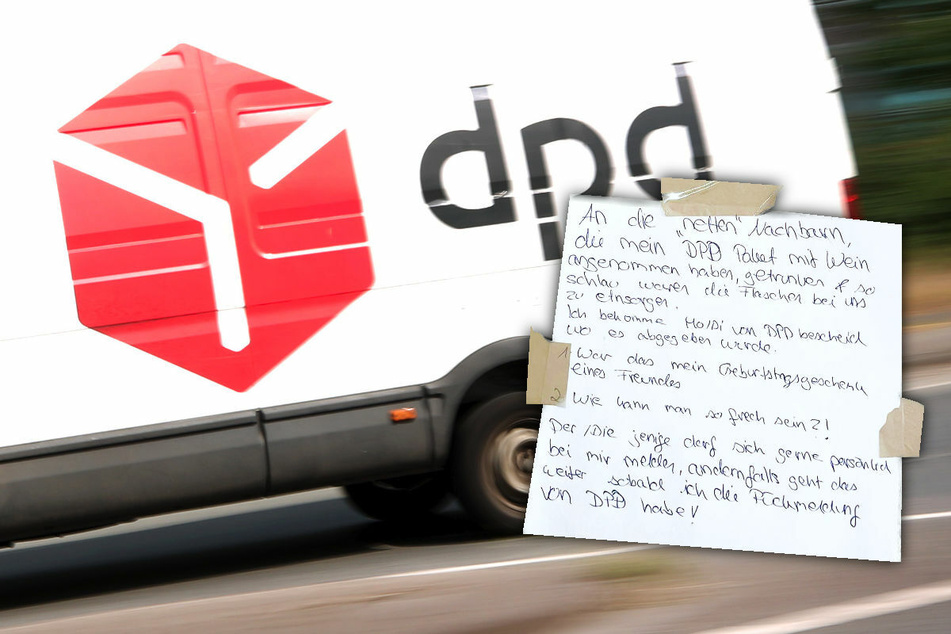 dpd
An die „netten" Nachbarn,
die mein DPD Paket mit Wein
angenommen haben, getrunken & so
schlau waren die Flaschen bei uns
zu entsorgen.
Ich bekomme Mo/Di von DPD bescheid
wo es abgegeben wurde.
1 War das mein Geburtstagsgeschenk
eines Freundes
2 Wie kann man so frech sein?!
Der/Die jenige darf sich gerne persönlich
bei mir melden, andernfalls geht das
weiter sobald ich die Rückmeldung
von DPD habe!